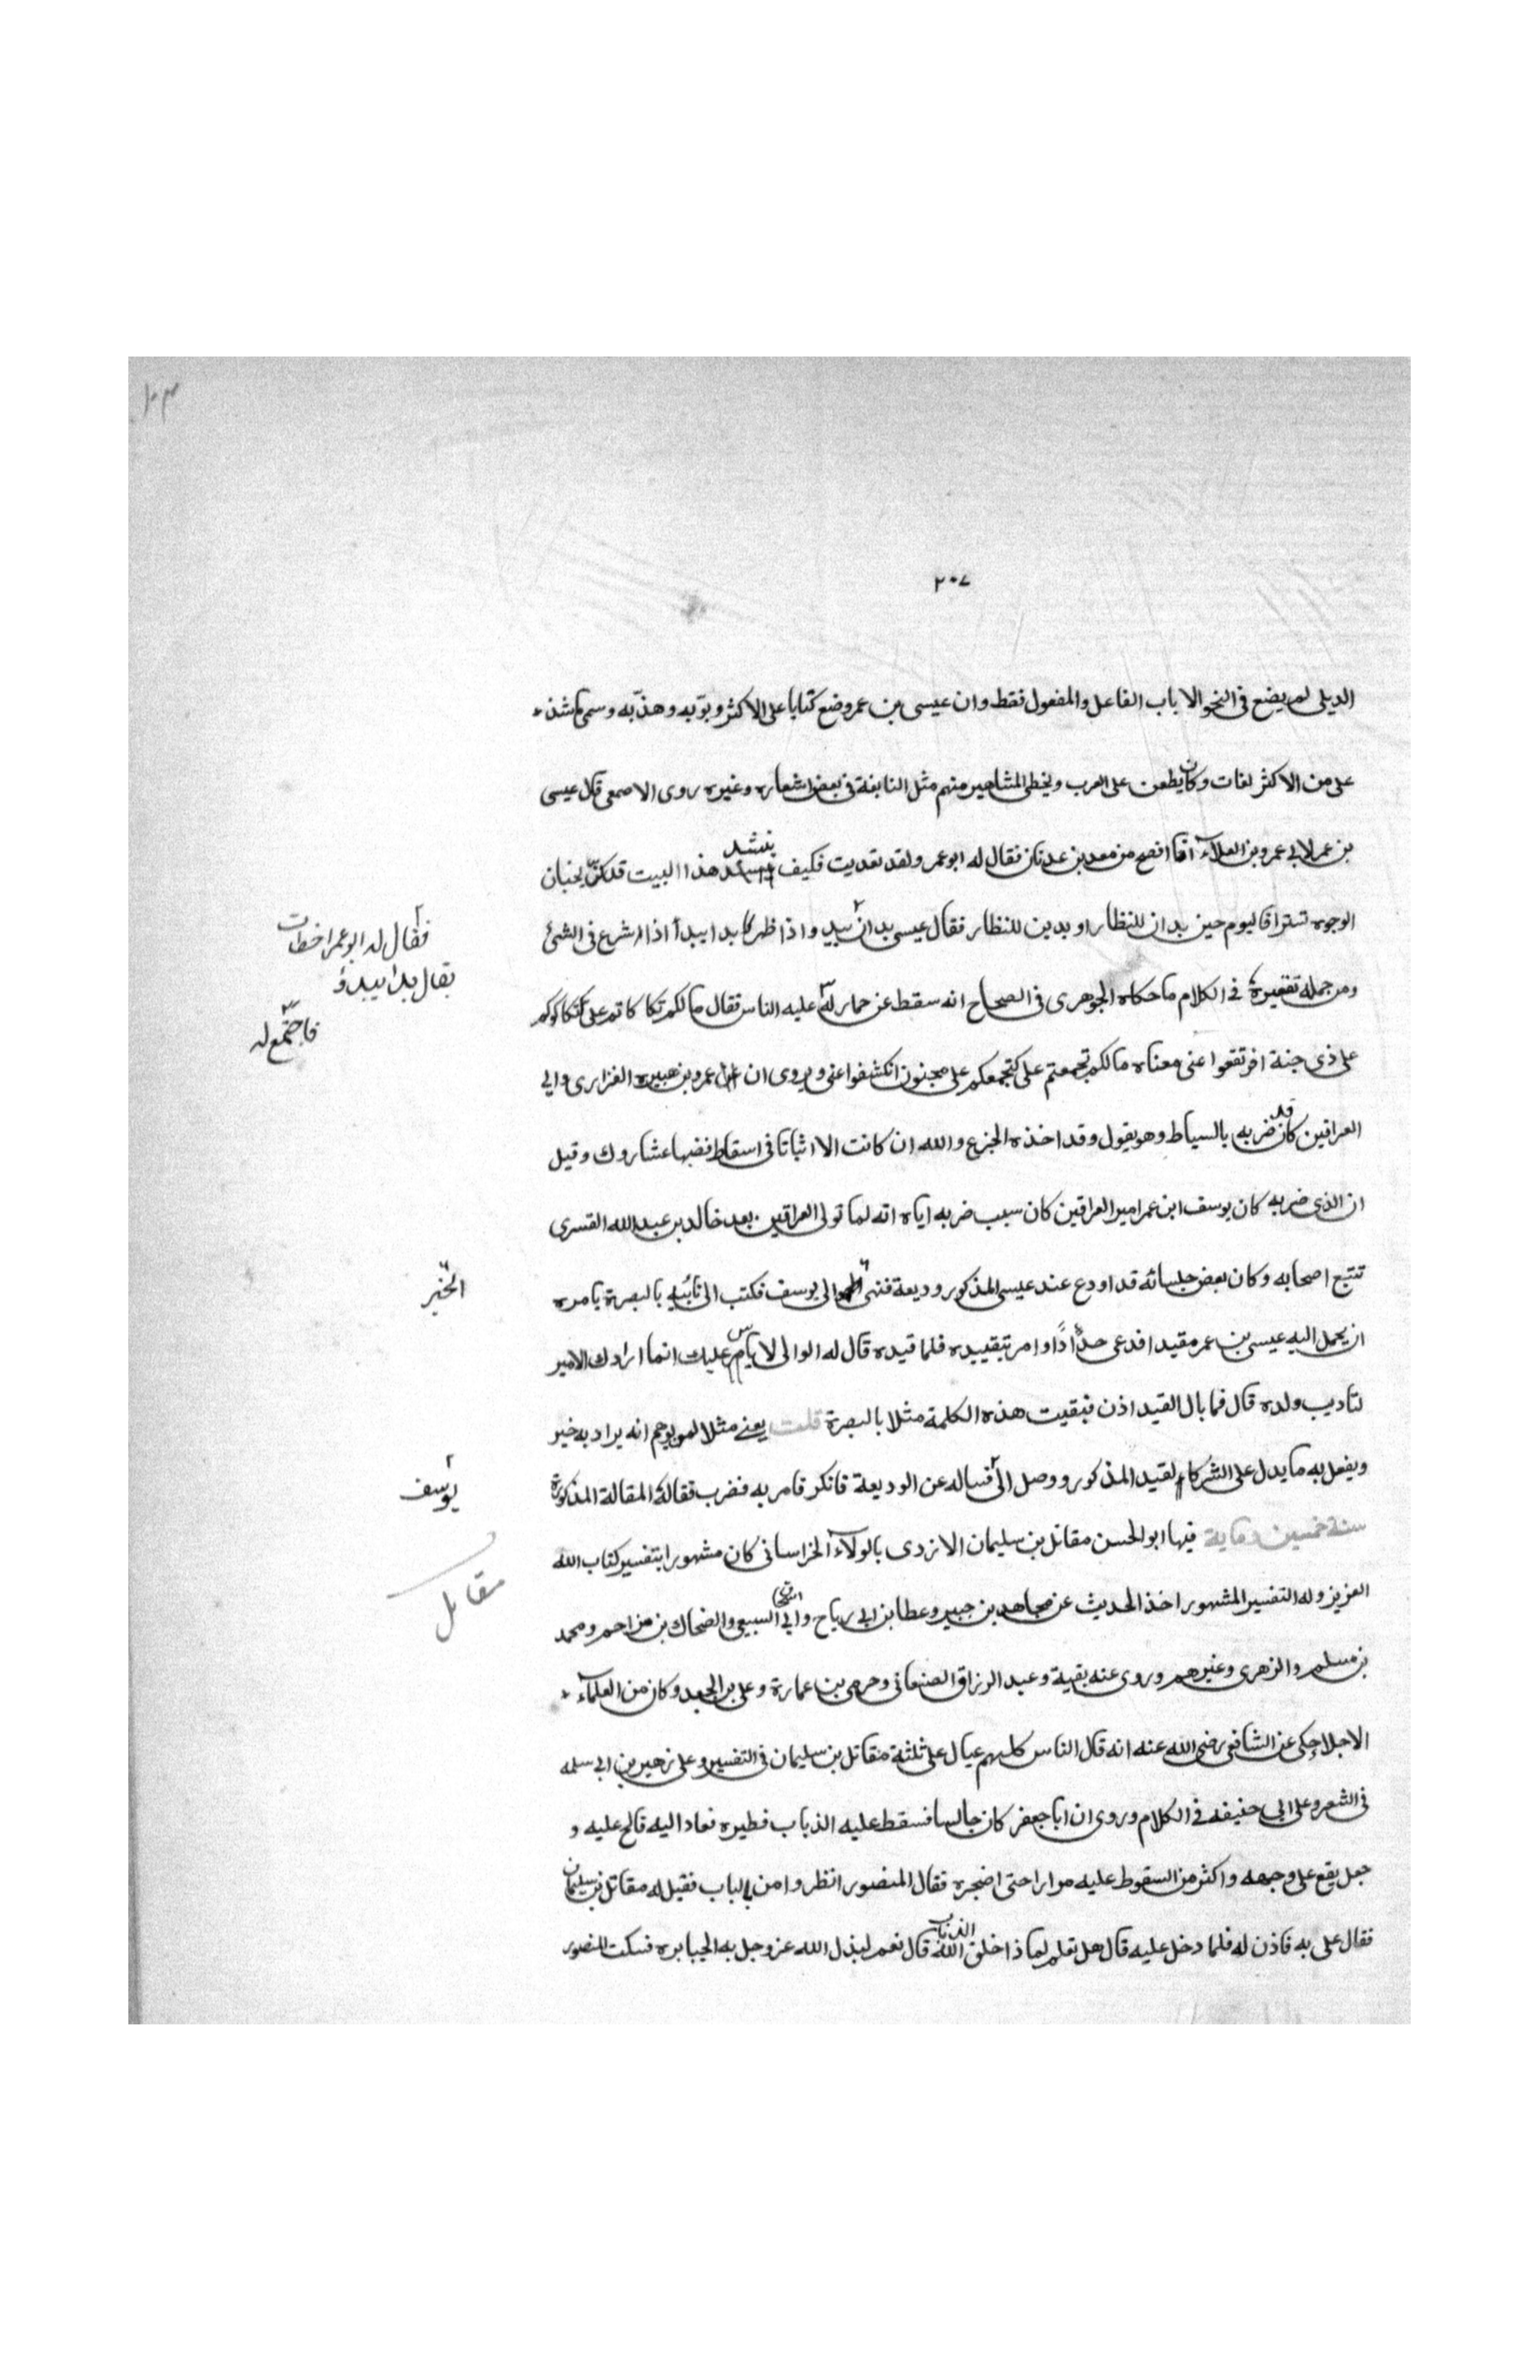 ١٠٣
٢٠٧
الديلى لم يضع فى النحو الا باب الفاعل والمفعول فقط وان عيسى بن عمر وضع كتابا على الاكثر وبوبه وهذبه وسمى ما شذ
على من الاكثر لغات وكان يطعن على العرب ويخطى المشاهير منهم مثل النابغة فى بعض اشعاره وغيره روى الاصمعى قال عيسى
بن عمر لابى عمرو بن العلاء انا افصح من معد بن عدنان فقال له ابو عمر ولقد تعديت فكيف ينشد هذا البيت قد كن يخبان
الوجوه تسترا فاليوم حين بدان للنظار او بدين للنظار فقال عيسى بدان واذا ظهر بدا يبدأ اذا شرع فى الشئ
فقال له ابو عمر اخطات
يقال بدا يبدؤ
ومن جملة تقعيره فى الكلام ما حكاه الجوهرى فى الصحاح انه سقط عن حمار له عليه الناس فقال ما لكم تكاكاتم على تكاكوكم
فاجتمع له
على ذى جنة افرنقعوا عنى معناه ما لكم تجمعتم على كتجمعكم على مجنون انكشفوا عنى ويروى ان عمرو بن هبيره الفزارى والى
العراقين كان قد ضربه بالسياط وهو يقول وقد اخذه الجزع والله ان كانت الا اثباتا فى اسقاط قضبها عشاروك وقيل
ان الذى ضربه كان يوسف ابن عمر امير العراقين كان سبب ضربه اياه انه لما تولى العراقين بعد خالد بن عبد الله القسرى
تتبع اصحابه وكان بعض جلسائه قد اودع عند عيسى المذكور وديعة فنمى الى يوسف فكتب الى نائبه بالبصرة يامره
الخبر
ان يحمل اليه عيسى بن عمر مقيدا فدعى حدادا وامر بتقييده فلما قيده قال له الوالى لا باس عليك انما ارادك الامير
لتاديب ولده قال فما بال القيد اذن فبقيت هذه الكلمة مثلا بالبصرة قلت يعنى مثلا لمن يوهم انه يراد به خير
ويفعل به ما يدل على الشر كالقيد المذكور ووصل الى فساله عن الوديعة فانكر فامر به فضرب فقال المقالة المذكورة
يوسف
سنة خمسين ومايه فيها ابو الحسن مقاتل بن سليمان الازدى بالولاء الخراسانى كان مشهورا بتفسير كتاب الله
مقاتل
العزيز وله التفسير المشهور اخذ الحديث عن مجاهد بن جبير وعطا بن ابى رباح وابى اسحق السبيعى والضحاك بن مزاحم ومحمد
بن مسلم والزهرى وغيرهم وروى عنه بقية وعبد الرزاق الصنعانى وحرمى بن عمارة وعلى بن الجعد وكان من العلماء
الاجلا حكى عن الشافعى رضى الله عنه انه قال الناس كلهم عيال على ثلثة مقاتل بن سليمان فى التفسير وعلى زهير بن ابى سلمه
فى الشعر وعلى ابى حنيفه فى الكلام وروى ان ابا جعفر كان جالسا فسقط عليه الذباب فطيره فعاد اليه فالح عليه و
جعل يقع على وجهه واكثر من السقوط عليه مرارا حتى اضجره فقال المنصور انظروا من بالباب فقيل له مقاتل بن سليمان
فقال على به فاذن له فلما دخل عليه قال هل تعلم لماذا خلق الله الذباب قال نعم ليذل الله عز وجل به الجبابره فسكت المنصور